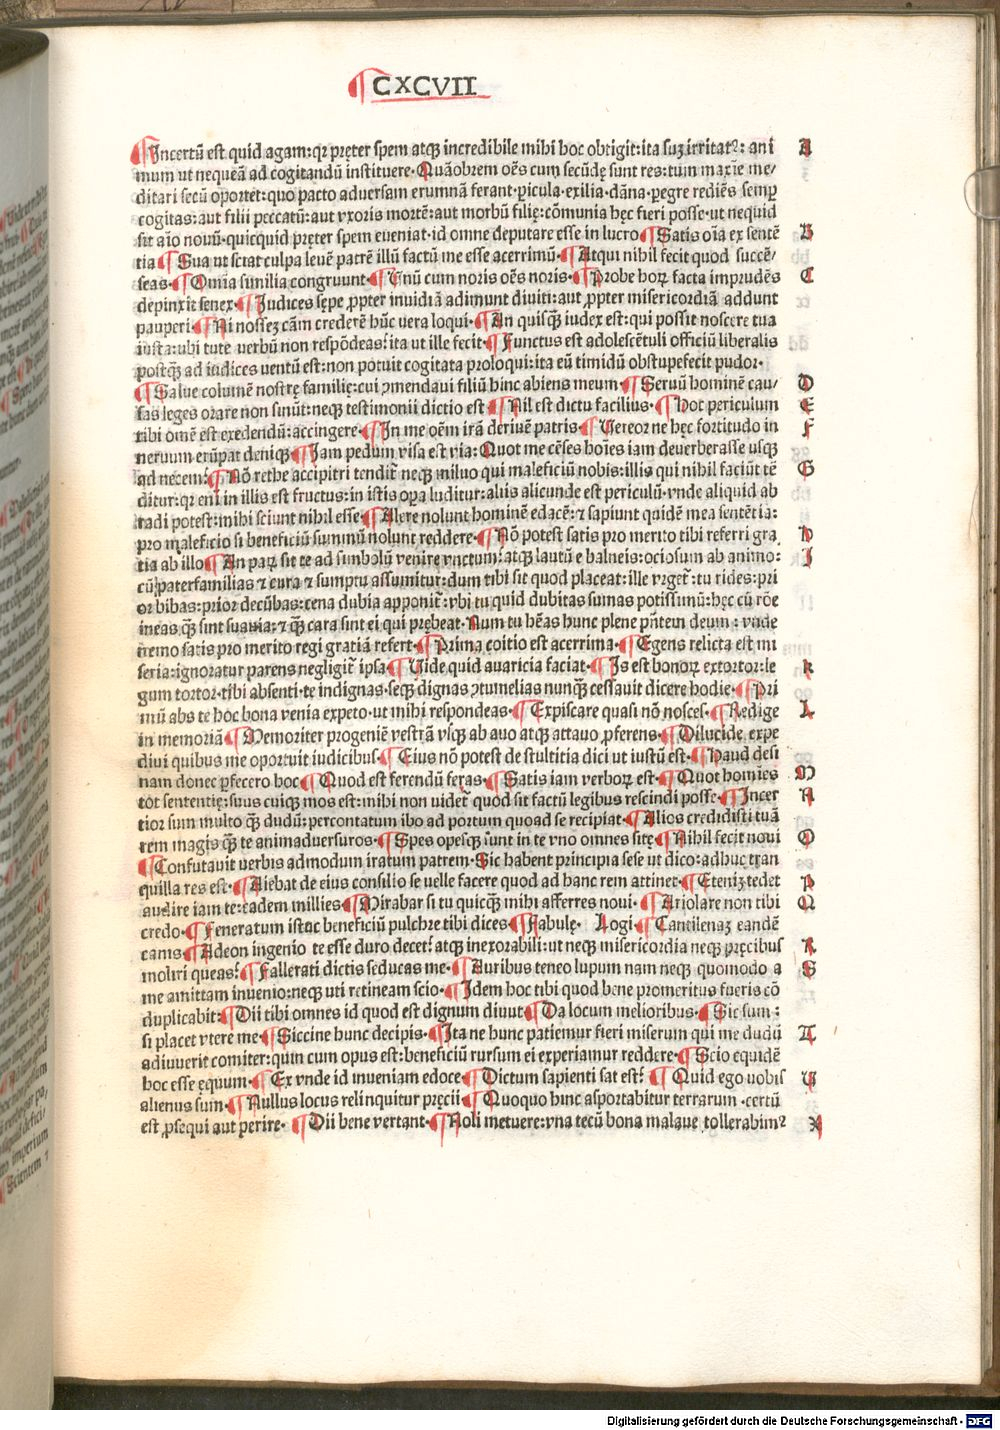 ¶ CXCVII
¶Incertū est quid agam: qꝛ pręter spem atqꝫ incredibile mihi hoc obtigit: ita suꝫ irritatꝰ: ani A
mum ut nequeā ad cogitandū instituere. Quāobrem oēs cum secūdę sunt res: tum maxīe me/
ditari secū oportet: quo pacto aduersam erumnā ferant. picula. exilia. dāna. pegre rediēs semp
cogitas: aut filii peccatū: aut vxoris mortē: aut morbū filię: cōmunia hęc fieri posse. ut nequid
sit aīo nouū. quicquid pręter spem eueniat. id omne deputare esse in lucro ¶Satis oīa ex sentē B
tia ¶Sua ut sciat culpa leuē patrē illū factū me esse acerrimū. ¶Atqui nihil fecit quod succē/
seas. ¶Omīa similia congruunt. ¶Unū cum noris oēs noris. ¶Probe hoꝝ facta imprudēs C
depinxit senex. ¶Iudices sępe ꝓpter inuidiā adimunt diuiti: aut ꝓpter misericordiā addunt
pauperi. ¶Ni nosseꝫ cām crederē hūc uera loqui. ¶An quisqꝫ iudex est: qui possit noscere tua
iusta: ubi tute uerbū non respōdeas: ita ut ille fecit. ¶Functus est adolescētuli officiū liberalis
postqꝫ ad iudices uentū est: non potuit cogitata proloqui: ita eū timidū obstupefecit pudor.
¶Salue columē nostrę familię: cui ꝯmendaui filiū hinc abiens meum. ¶Seruū hominē cau/ D
sas leges orare non sinūt: neqꝫ testimonii dictio est ¶Nil est dictu facilius. ¶Hoc periculum E
tibi omē est exedendū: accingere. ¶In me oēm irā deriuē patris. ¶Uereor ne hęc fortitudo in F
neruum erūpat deniqꝫ ¶Iam pedum visa est via: Quot me cēses hoīes iam deuerberasse usqꝫ
ad necem: ¶Nō rethe accipitri tendit neqꝫ miluo qui maleficiū nobis: illis qui nihil faciūt tē G
ditur: qꝛ enī in illis est fructus: in istis oꝑa luditur: aliis alicunde est periculū. vnde aliquid ab
radi potest: mihi sciunt nihil esse. ¶Alere nolunt hominē edacē: ⁊ sapiunt quidē mea sentētia:
pro maleficio si beneficiū summū nolunt reddere. ¶Nō potest satis pro merito tibi referri gra H
tia ab illo ¶An paꝝ sit te ad simbolū venire vnctum: atqꝫ lautū e balneis: ociosum ab animo: I
cū paterfamilias ⁊ cura ⁊ sumptu assumitur: dum tibi sit quod placeat: ille vrget: tu rides: pri
or bibas: prior decūbas: cena dubia apponit: vbi tu quid dubitas sumas potissimū: hęc cū rōe
ineas qꝫ sint suauia: ⁊ qꝫ cara sint ei qui prębeat. Num tu hēas hunc plene pn̄tem deum: vnde
nemo satis pro merito regi gratiā refert. ¶Prima coitio est acerrima. ¶Egens relicta est mi
seria: ignoratur parens negligit ipsa. ¶Uide quid auaricia faciat. ¶Is est bonoꝝ extortor: le K
gum tortor. tibi absenti. te indignas. seqꝫ dignas ꝯtumelias nunqꝫ cessauit dicere hodie. ¶Pri
mū abs te hoc bona venia expeto. ut mihi respondeas. ¶Expiscare quasi nō nosces. ¶Redige L
in memoriā ¶Memoriter progeniē vestrā vsqꝫ ab auo atqꝫ attauo ꝓferens. ¶Dilucide expe
diui quibus me oportuit iudicibus. ¶Eius nō potest de stultitia dici ut iustū est. ¶Haud desi
nam donec ꝑfecero hoc ¶Quod est ferendū feras. ¶Satis iam verboꝝ est. ¶Quot homīes M
tot sententię: suus cuiqꝫ mos est: mihi non uidet quod sit factū legibus rescindi posse. ¶Incer N
tior sum multo qꝫ dudū: percontatum ibo ad portum quoad se recipiat. ¶Alios credidisti tuā
rem magis qꝫ te animaduersuros. ¶Spes opesqꝫ sunt in te vno omnes sitę. ¶Nihil fecit noui O
¶Confutauit uerbis admodum iratum patrem. Sic habent principia sese ut dico: adhuc tran
quilla res est. ¶Aiebat de eius consilio se uelle facere quod ad hanc rem attinet. ¶Eteniꝫ tedet P
audire iam te: eadem millies. ¶Mirabar si tu quicqꝫ mihi afferres noui. ¶Ariolare non tibi Q
credo. ¶Feneratum istac beneficiū pulchre tibi dices. ¶Fabulę. Logi. ¶Cantilenaꝫ eandē
canis. ¶Adeon ingenio te esse duro decet: atqꝫ inexorabili: ut neqꝫ misericordia neqꝫ pręcibus R
moliri queas: ¶Fallerati dictis seducas me. ¶Auribus teneo lupum nam neqꝫ quomodo a S
me amittam inuenio: neqꝫ uti retineam scio. ¶Idem hoc tibi quod bene promeritus fueris cō
duplicabit: ¶Dii tibi omnes id quod est dignum duint. ¶Da locum melioribus. ¶Sic sum:
si placet vtere me. ¶Siccine hunc decipis. ¶Ita ne hunc patiemur fieri miserum qui me dudū T
adiuuerit comiter: quin cum opus est: beneficiū rursum ei experiamur reddere. ¶Scio equidē
hoc esse equum. ¶Ex vnde id inueniam edoce. ¶Dictum sapienti sat est: ¶Quid ego uobis U
alienus sum. ¶Nullus locus relinquitur pręcii ¶Quoquo hinc asportabitur terrarum. certū
est ꝓsequi aut perire. ¶Dii bene vertant. ¶Noli metuere: vna tecū bona malaue tollerabimꝰ X
Digitalisierung gefördert durch die Deutsche Forschungsgemeinschaft - DFG